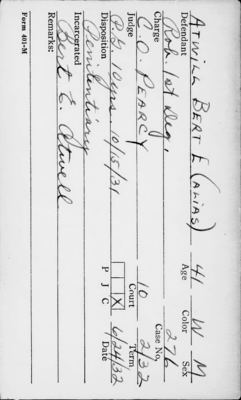 ATWILL BERT E (ALIAS) 41 W M
Defendant Age Color Sex
Rob. 1st Deg. 276
Charge Case No.
C. O. PEARCY 10 2/32
Judge Court Term
P.G. 10 yrs 10/15/31 X 6/24/32
Disposition P J C Date
Penitentiary
Incarcerated
Bert E. Atwell
Remarks:
Form 401-M